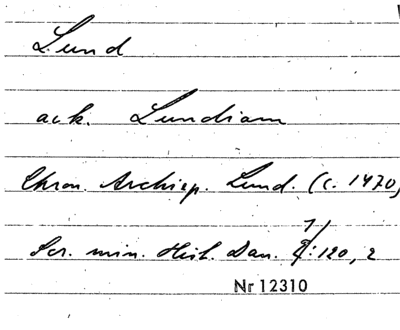 Lund
ack. Lundiam
Chron. Archiep. Lund. (c. 1470)
Scr. min. Hist. Dan. :120, 2
Nr 12310